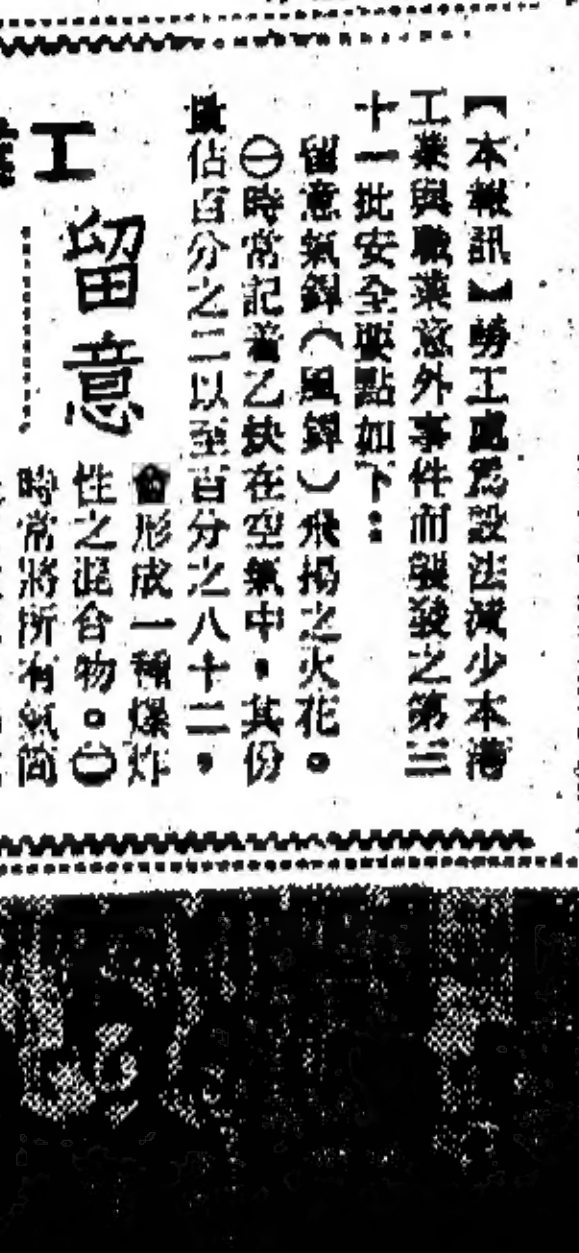 【本報訊】勞工處爲設法減少本港
工業與職業意外事件而頒發之第三
十一批安全要點如下：
留意氣銲（風銲）飛揚之火花。
㊀時常記着乙炔在空氣中，其份
量佔百分之二以至百分之八十二，
會形成一種爆炸
性之混合物。㊁
時常將所有氣筒
留意
工業